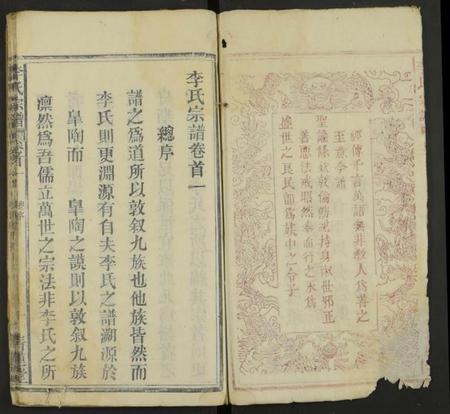 經傳千言萬語無非教人為善之
至意今譜
聖諭條欸敦倫飭紀持身淑世邪正
善惡法戒昭然奉而行之永爲
盛世之良民即爲族中之令子
李氏宗譜卷首一
總序
譜之爲道所以敦叙九族也他族皆然而
李氏則更淵源有自夫李氏之譜溯源於
臯陶而臯陶之謨則以敦叙九族
凛然爲吾儒立萬世之宗法非李氏之所
李氏宗譜 卷首
總序